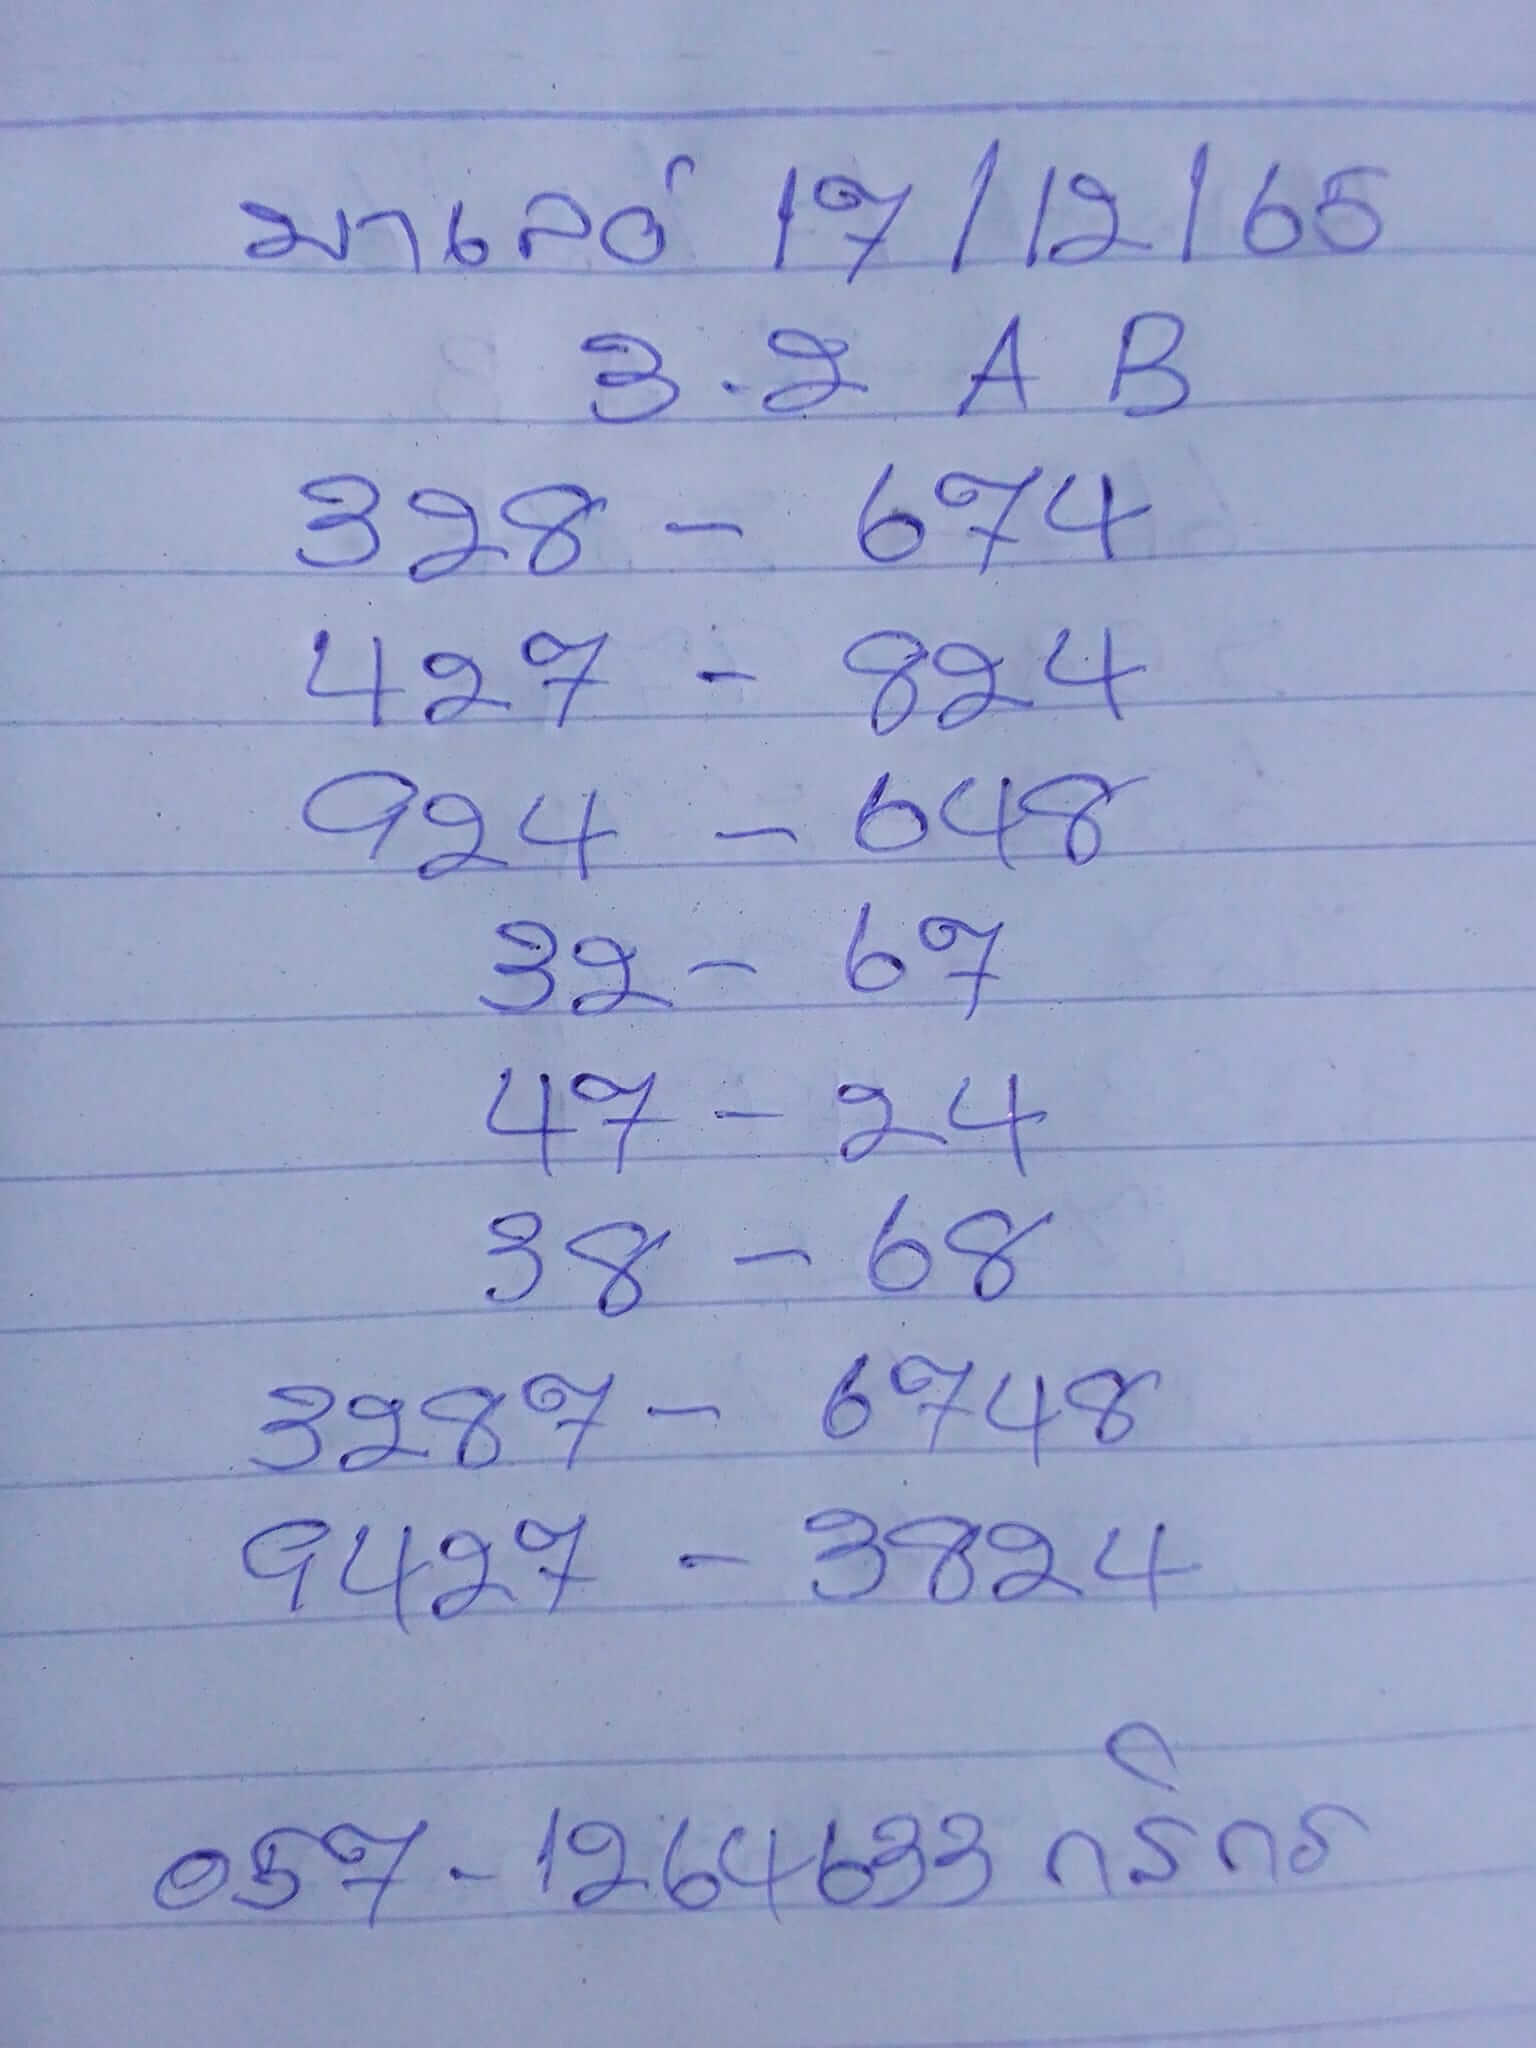 มาเลย์ 17/12/65
3.2 A B
328 - 674
427 - 824
924 - 648
32 - 67
47 - 24
38 - 68
3287 - 6748
9427 - 3824
057-1264633 กริกร